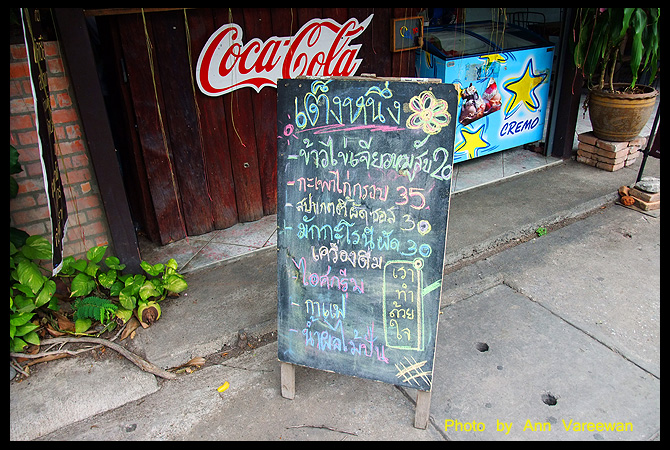 Coca-Cola
CREMO
เต๋งหนึ่ง
- ข้าวไข่เจียวหมูสับ 20
- กะเพาไก่กรอบ 35.
- สปาเกตตี้ผัดซอส 30
- มักกะโรนีผัด 30
เครื่องดื่ม
ไอศกรีม
- กาแฟ
- น้ำผลไม้ปั่น
เรา
ทำ
ด้วย
ใจ
Photo by Ann Vareewan